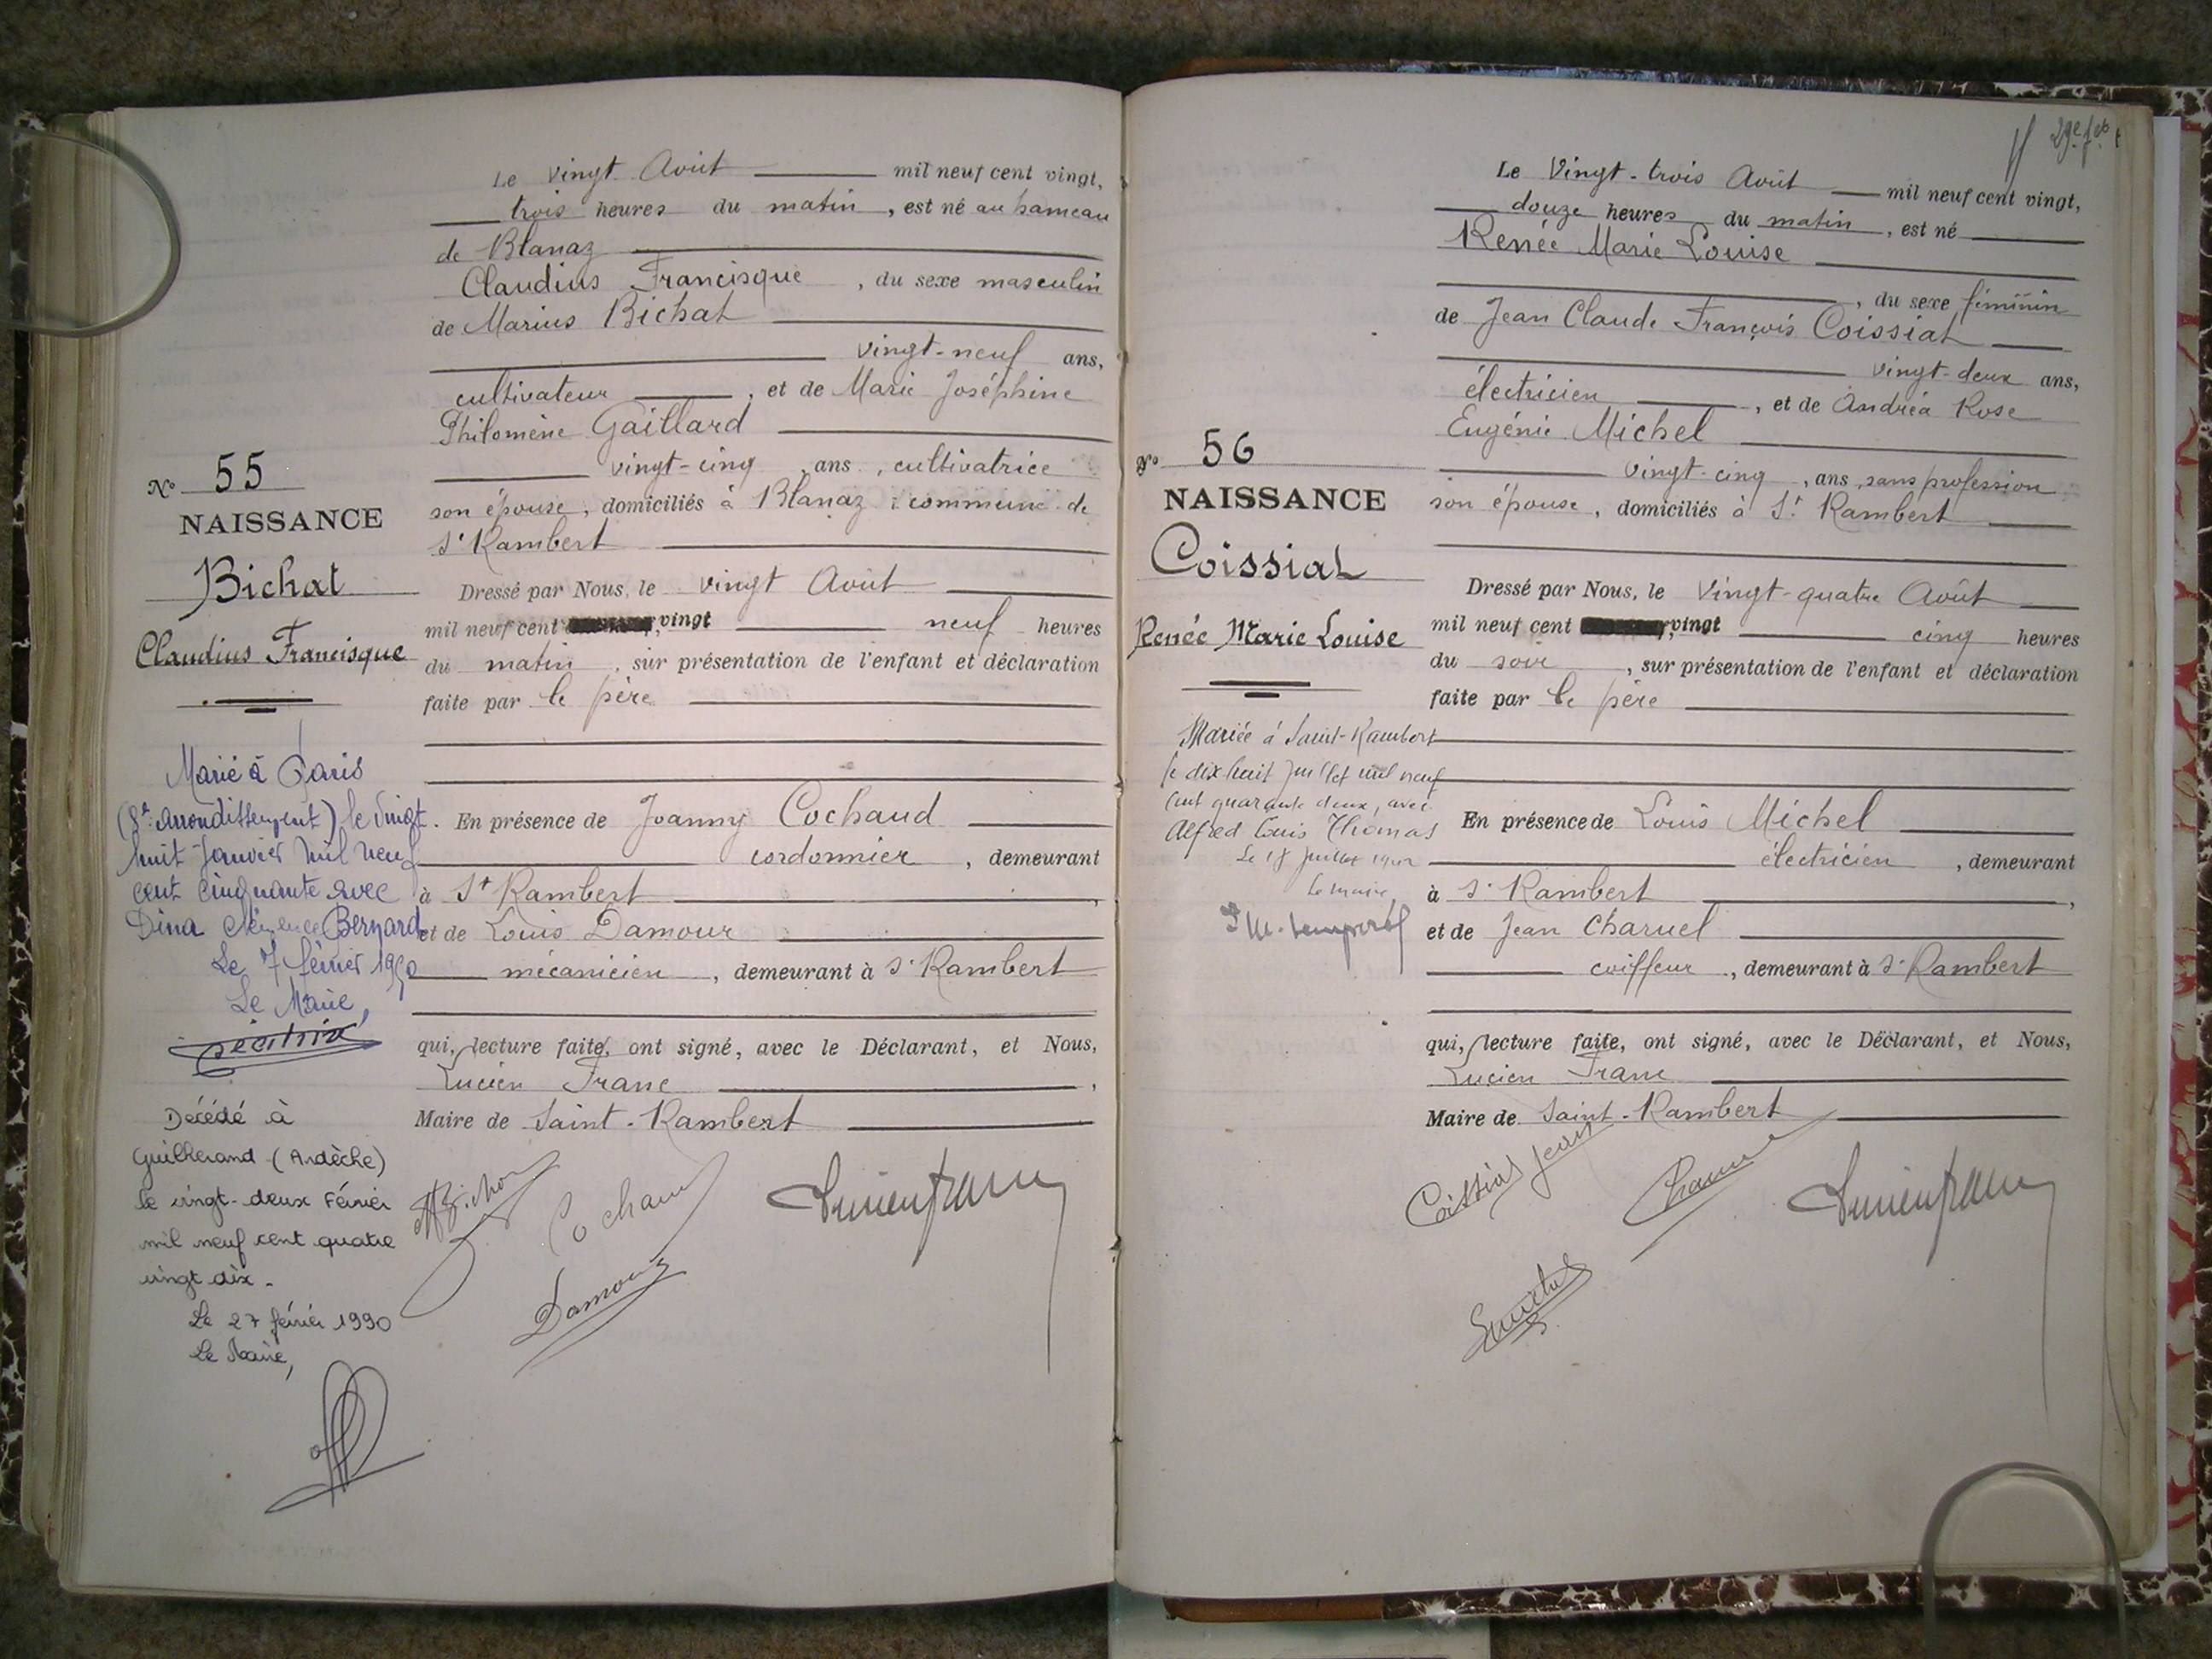 Le vingt Août mil neuf cent vingt,
trois heures du matin, est né au hameau
de Blanaz
Claudius Francisque, du sexe masculin
de Marius Bichat
vingt-neuf ans,
cultivateur, et de Marie Joséphine
Philomène Gaillard
vingt-cinq, ans, cultivatrice
son épouse, domiciliés à Blanaz commune de
St Rambert
Dressé par Nous, le vingt Août
mil neuf cent vingt neuf heures
du matin, sur présentation de l'enfant et déclaration
faite par le père
En présence de Joanny Cochaud
cordonnier, demeurant
à St Rambert,
et de Louis Damour
mécanicien, demeurant à St Rambert
qui, lecture faite, ont signé, avec le Déclarant, et Nous,
Lucien Franc,
Maire de Saint-Rambert
Cochaud
Damour
Lucien Franc
No 55
NAISSANCE
Bichat
Claudius Francisque
Marié à Paris
(8e arrondissement) le vingt
huit Janvier mil neuf
cent cinquante avec
Dina Bernard
Le 7 février 1950
Le Maire,
Décédé à
Guilherand (Ardèche)
le vingt-deux Février
mil neuf cent quatre
vingt dix.
Le 27 février 1990
Le Maire,
29e ft
Le Vingt-trois Août mil neuf cent vingt,
douze heures du matin, est né
Renée Marie Louise
, du sexe féminin
de Jean Claude François Coissiat
vingt-deux ans,
électricien, et de Andréa Rose
Eugénie Michel
vingt-cinq, ans, sans profession
son épouse, domiciliés à St Rambert
Dressé par Nous, le Vingt-quatre Août
mil neuf cent vingt cinq heures
du soir, sur présentation de l'enfant et déclaration
faite par le père
En présence de Louis Michel
électricien, demeurant
à St Rambert,
et de Jean Charuel
coiffeur, demeurant à St Rambert
qui, lecture faite, ont signé, avec le Déclarant, et Nous,
Lucien Franc
Maire de Saint-Rambert
Coissiat Jean
Lucien Franc
No 56
NAISSANCE
Coissiat
Renée Marie Louise
Mariée à Saint-Rambert
le dix huit Juillet mil neuf
cent quarante deux, avec
Alfred Louis Thomas
Le 18 Juillet 1942
Le maire